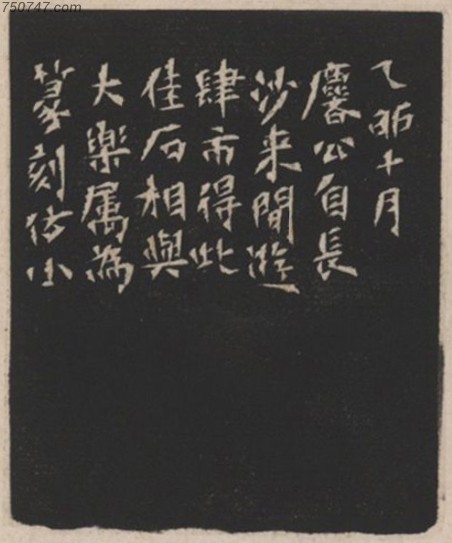 750747.com
乙丣十月
麐公自長
沙来閒遊
肆市得此
佳石相與
大樂属為
篆刻仿小